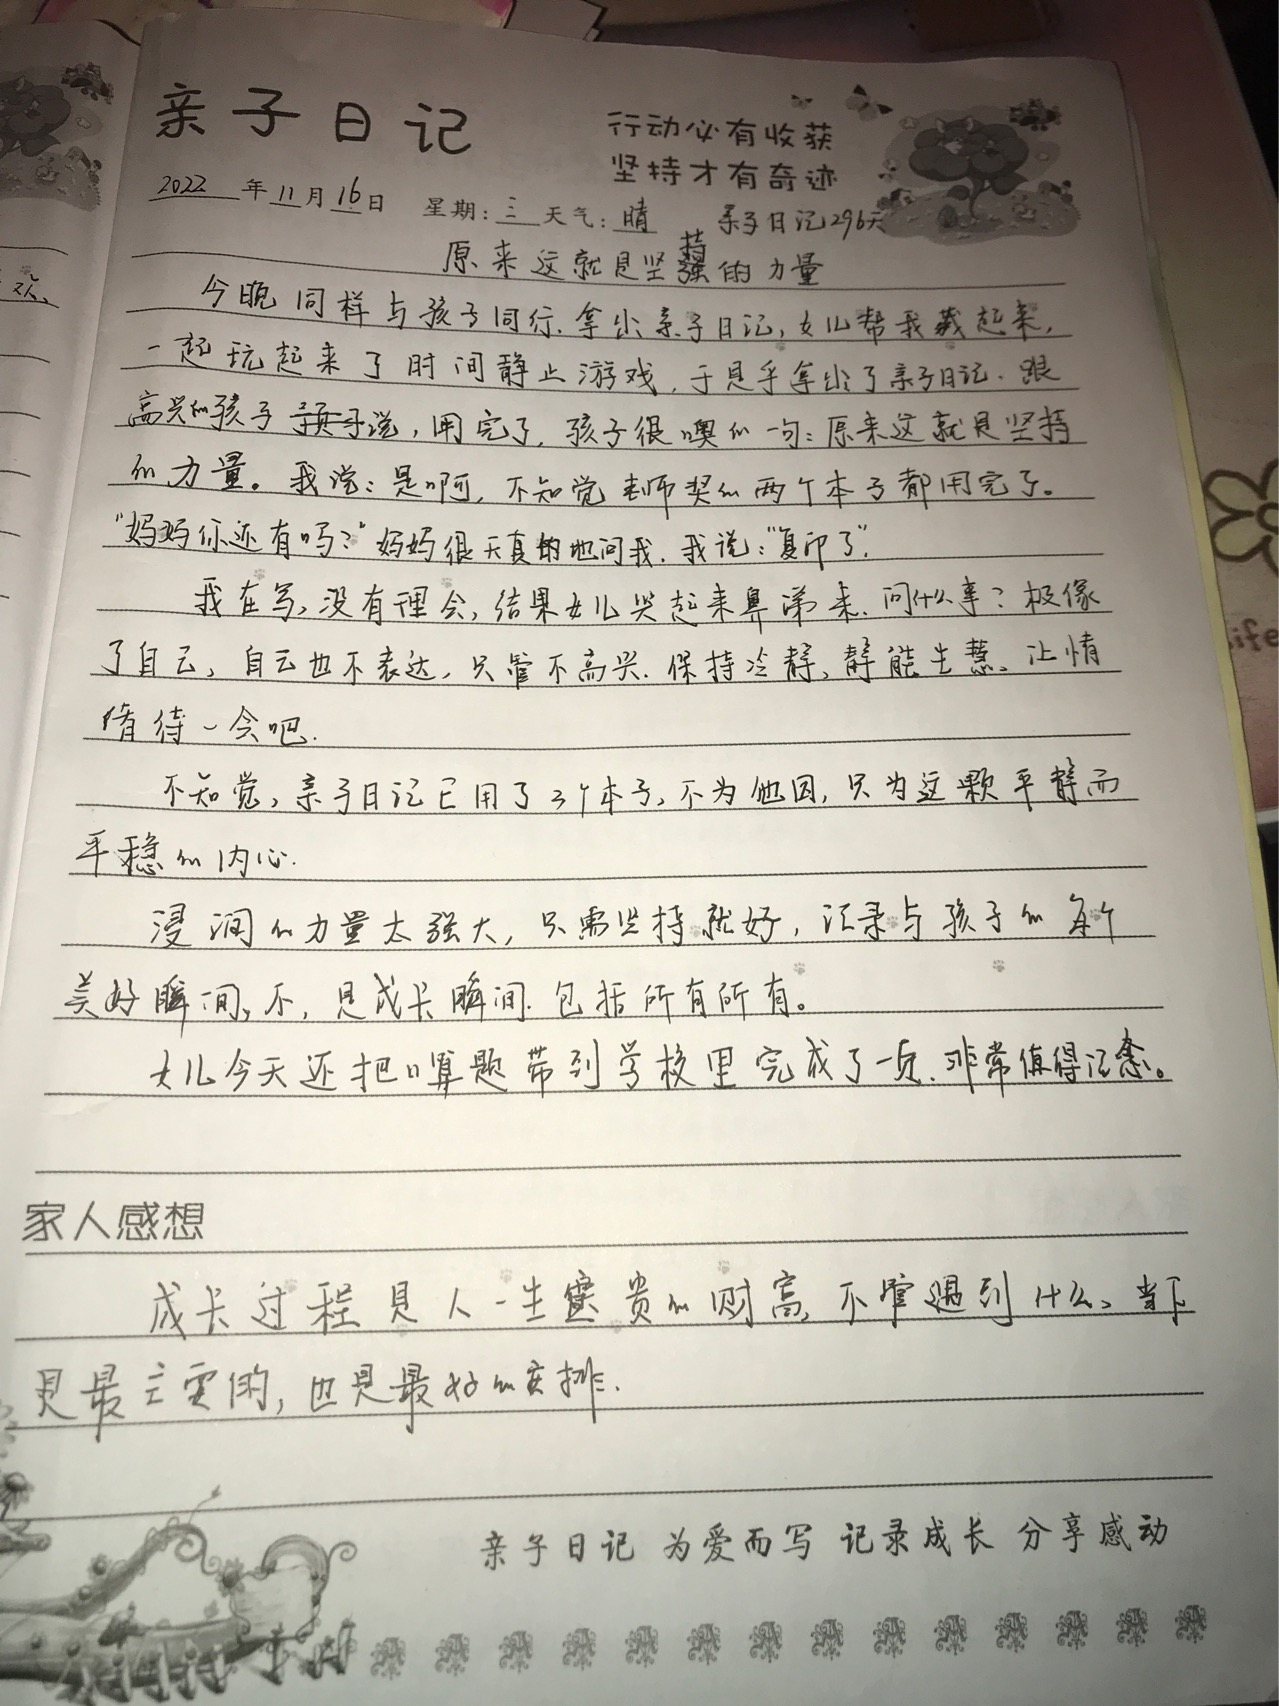 亲子日记
行动必有收获
坚持才有奇迹
2022年11月16日 星期:三 天气:晴 亲子日记296天
原来这就是坚持的力量
今晚同样与孩子同行.拿出亲子日记,女儿帮我藏起来,
一起玩起来了时间静止游戏.于是乎拿出了亲子日记.跟
高兴的孩子说,用完了.孩子很噢的一句:原来这就是坚持
的力量。我说:是啊,不知觉老师奖的两个本子都用完了。
“妈妈你还有吗?”妈妈很天真的地问我.我说:“复印了”.
我在写,没有理会,结果女儿哭起来鼻涕来.问什么事?极像
了自己,自己也不表达,只管不高兴.保持冷静,静能生慧、让情
绪待一会吧.
不知觉,亲子日记已用了3个本子,不为他因,只为这颗平静而
平稳的内心.
浸润的力量太强大,只需坚持就好,记录与孩子的每个
美好瞬间,不,是成长瞬间.包括所有所有。
女儿今天还把口算题带到学校里完成了一页.非常值得记念。
家人感想
成长过程是人一生宝贵的财富,不管遇到什么、当下
是最重要的,也是最好的安排.
亲子日记 为爱而写 记录成长 分享感动